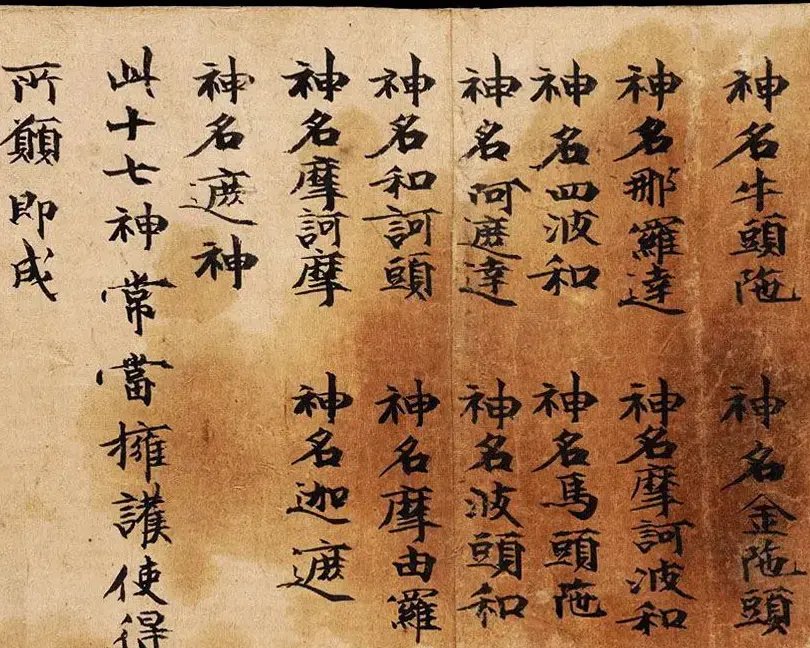 神名牛頭陁 神名金陁頭
神名那羅達 神名摩訶波和
神名四波和 神名馬頭陁
神名阿遮達 神名波頭和
神名和訶頭 神名摩由羅
神名摩訶摩 神名迦遮
神名遮神
此十七神常當擁護使得
所願即成